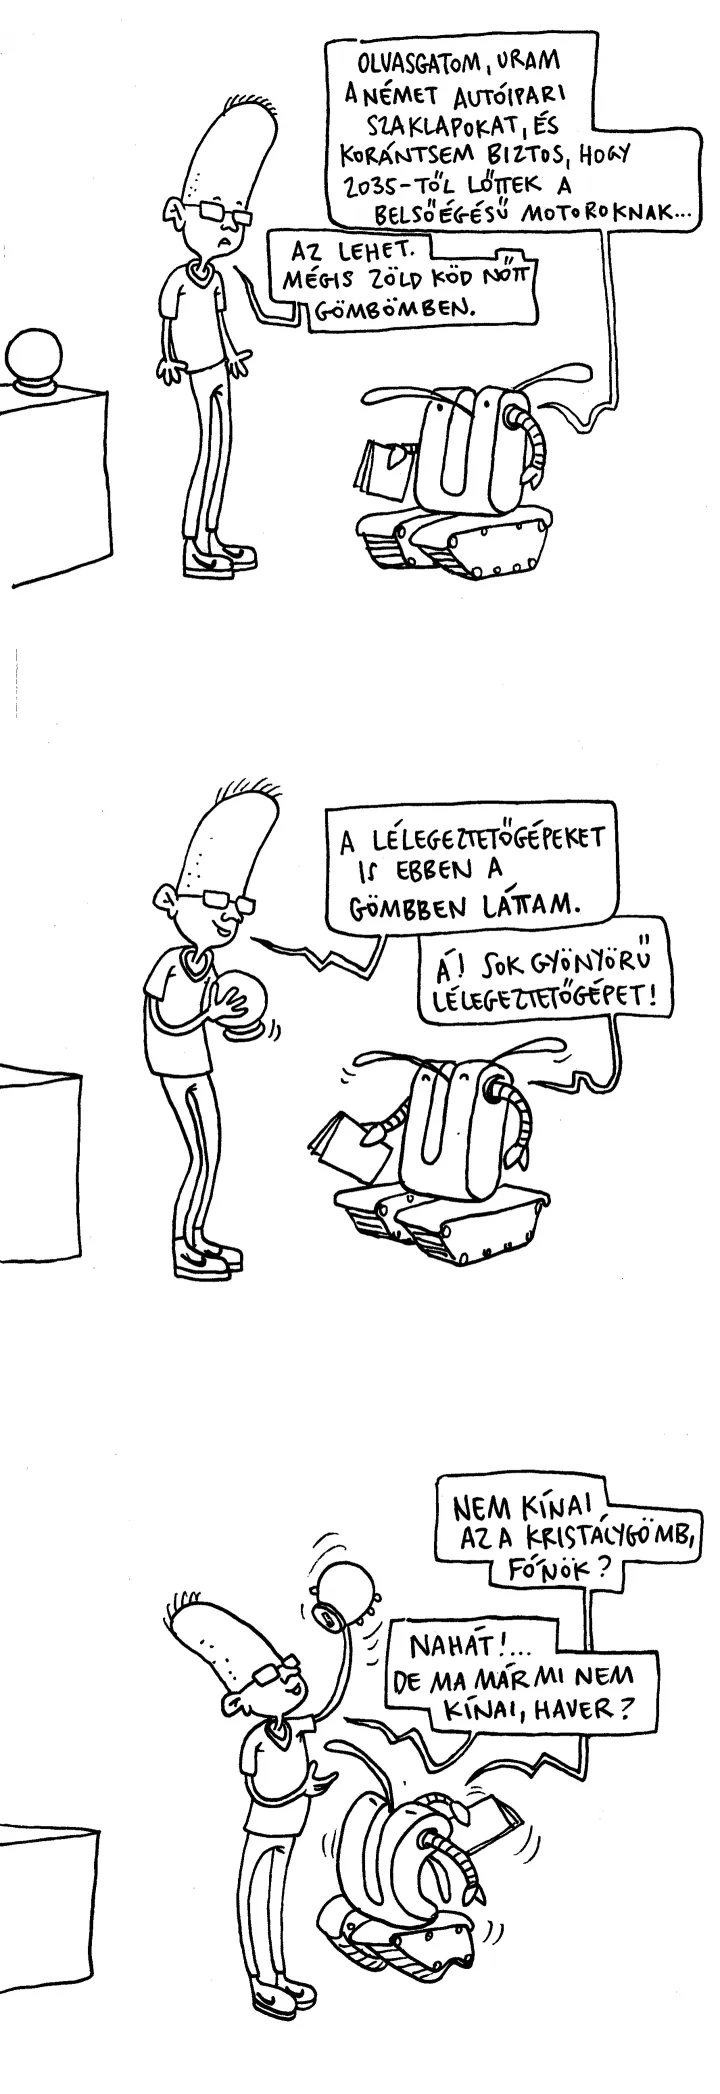 OLVASGATOM, URAM
A NÉMET AUTÓIPARI
SZAKLAPOKAT, ÉS
KORÁNTSEM BIZTOS, HOGY
2035-TŐL LŐTTEK A
BELSŐÉGÉSŰ MOTOROKNAK...
AZ LEHET.
MÉGIS ZÖLD KÖD NŐTT
GÖMBÖMBEN.
A LÉLEGEZTETŐGÉPEKET
IS EBBEN A
GÖMBBEN LÁTTAM.
Á! SOK GYÖNYÖRŰ
LÉLEGEZTETŐGÉPET!
NEM KÍNAI
AZ A KRISTÁLYGÖMB,
FŐNÖK?
NAHÁT!...
DE MA MÁR MI NEM
KÍNAI, HAVER?